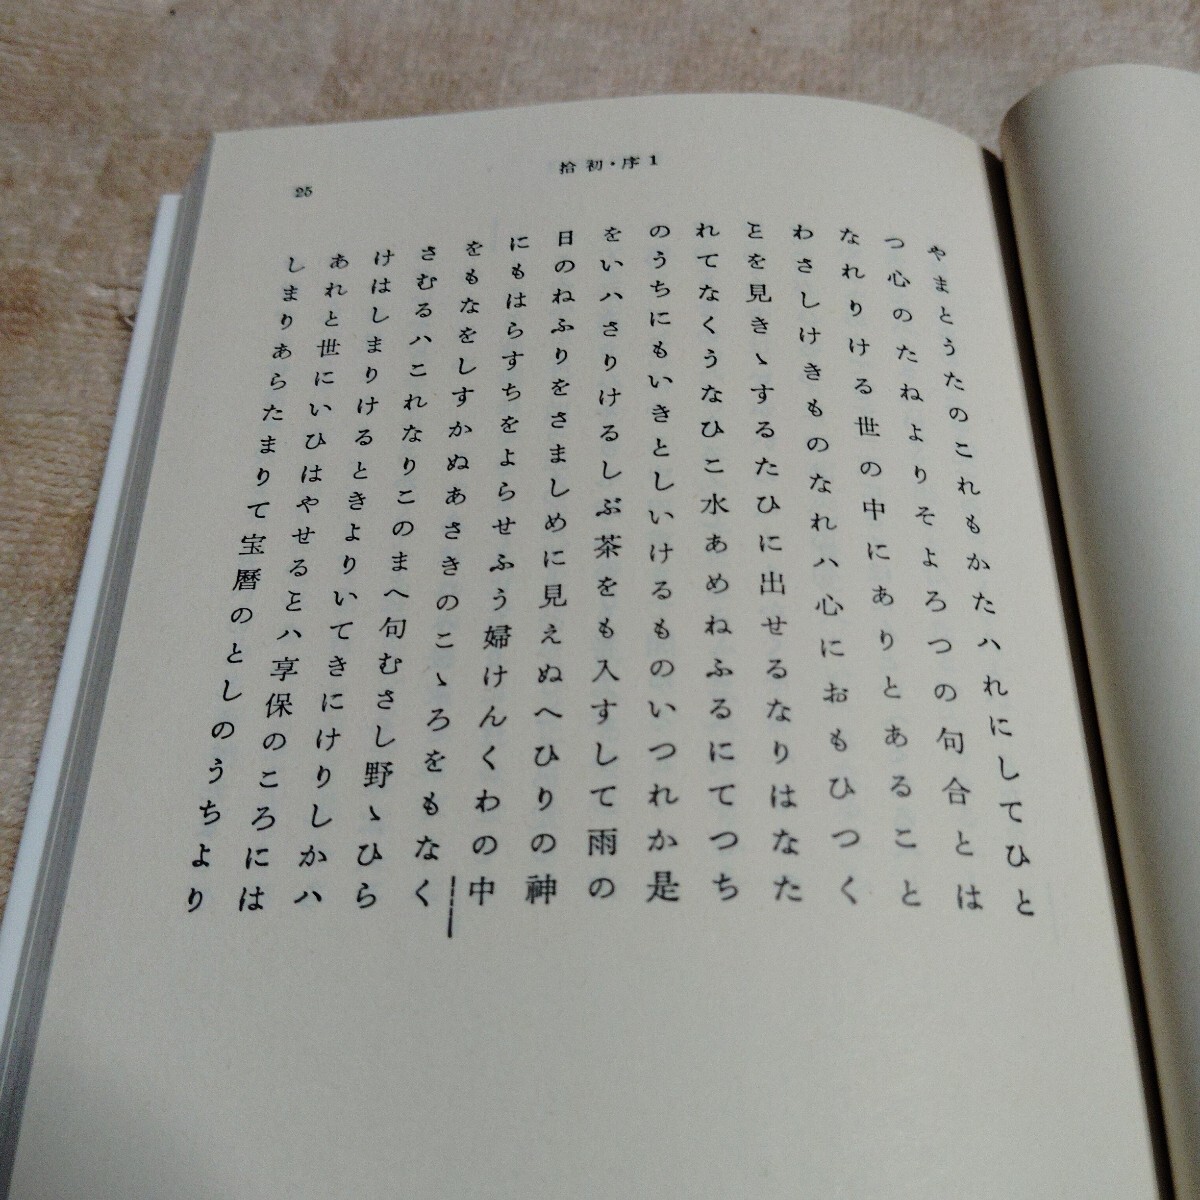 拾初・序1
25
やまとうたのこれもかたハれにしてひと
つ心のたねよりそよろつの句合とは
なれりける世の中にありとあること
わさしけきものなれハ心におもひつく
ヿを見きゝするたひに出せるなりはなた
れてなくうなひこ水あめねふるにてつち
のうちにもいきとしいけるものいつれか是
をいハさりけるしぶ茶をも入すして雨の
日のねふりをさましめに見えぬへひりの神
にもはらすちをよらせふう婦けんくわの中
をもなをしすかぬあさきのこゝろをもなく
さむるハこれなりこのまへ句むさし野ゝひら
けはしまりけるときよりいてきにけりしかハ
あれと世にいひはやせるヿハ享保のころには
しまりあらたまりて宝暦のとしのうちより